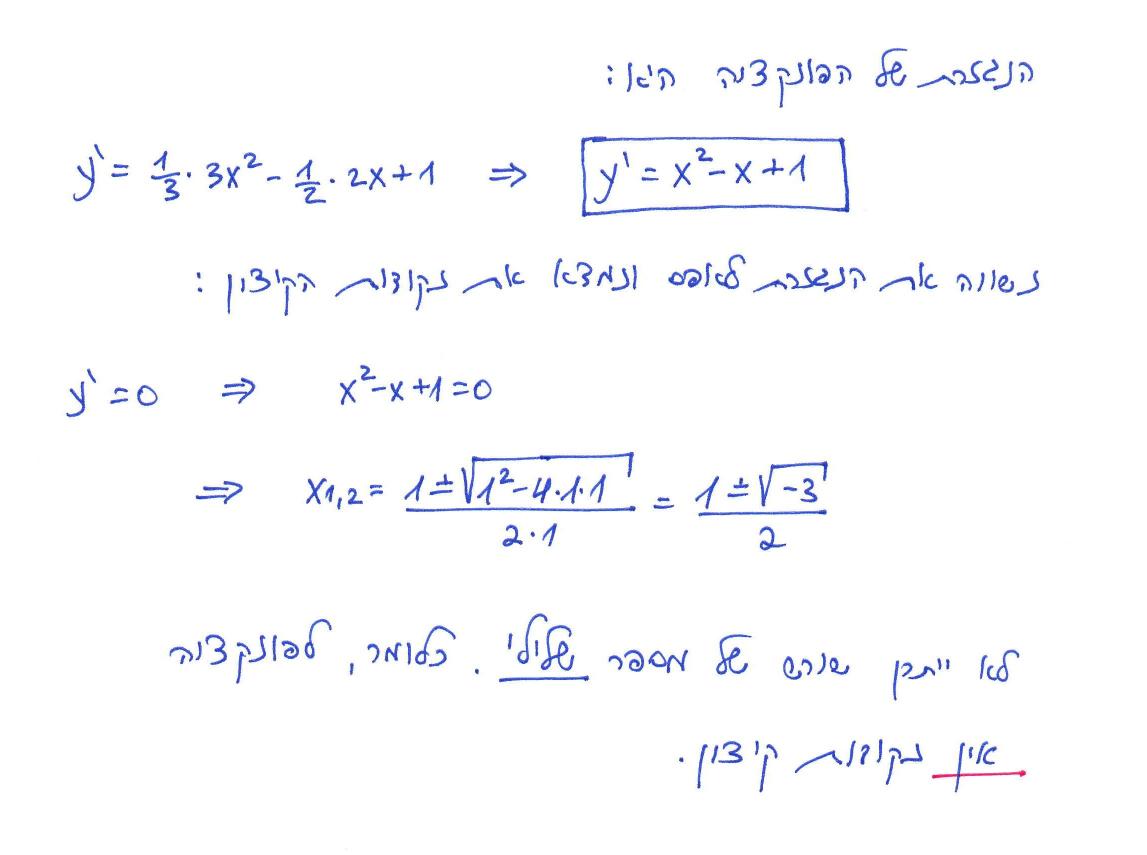 הנגזרת של הפונקציה היא:
y' = 1/3 · 3x² - 1/2 · 2x + 1 ⇒ y' = x² - x + 1
נשווה את הנגזרת לאופס ונמצא את נקודות הקיצון:
y' = 0 ⇒ x² - x + 1 = 0
⇒ x1,2 = (1 ± √(1² - 4·1·1)) / (2·1) = (1 ± √(-3)) / 2
לא ייתכן שורש של מספר שלילי. כלומר, לפונקציה
אין נקודות קיצון.